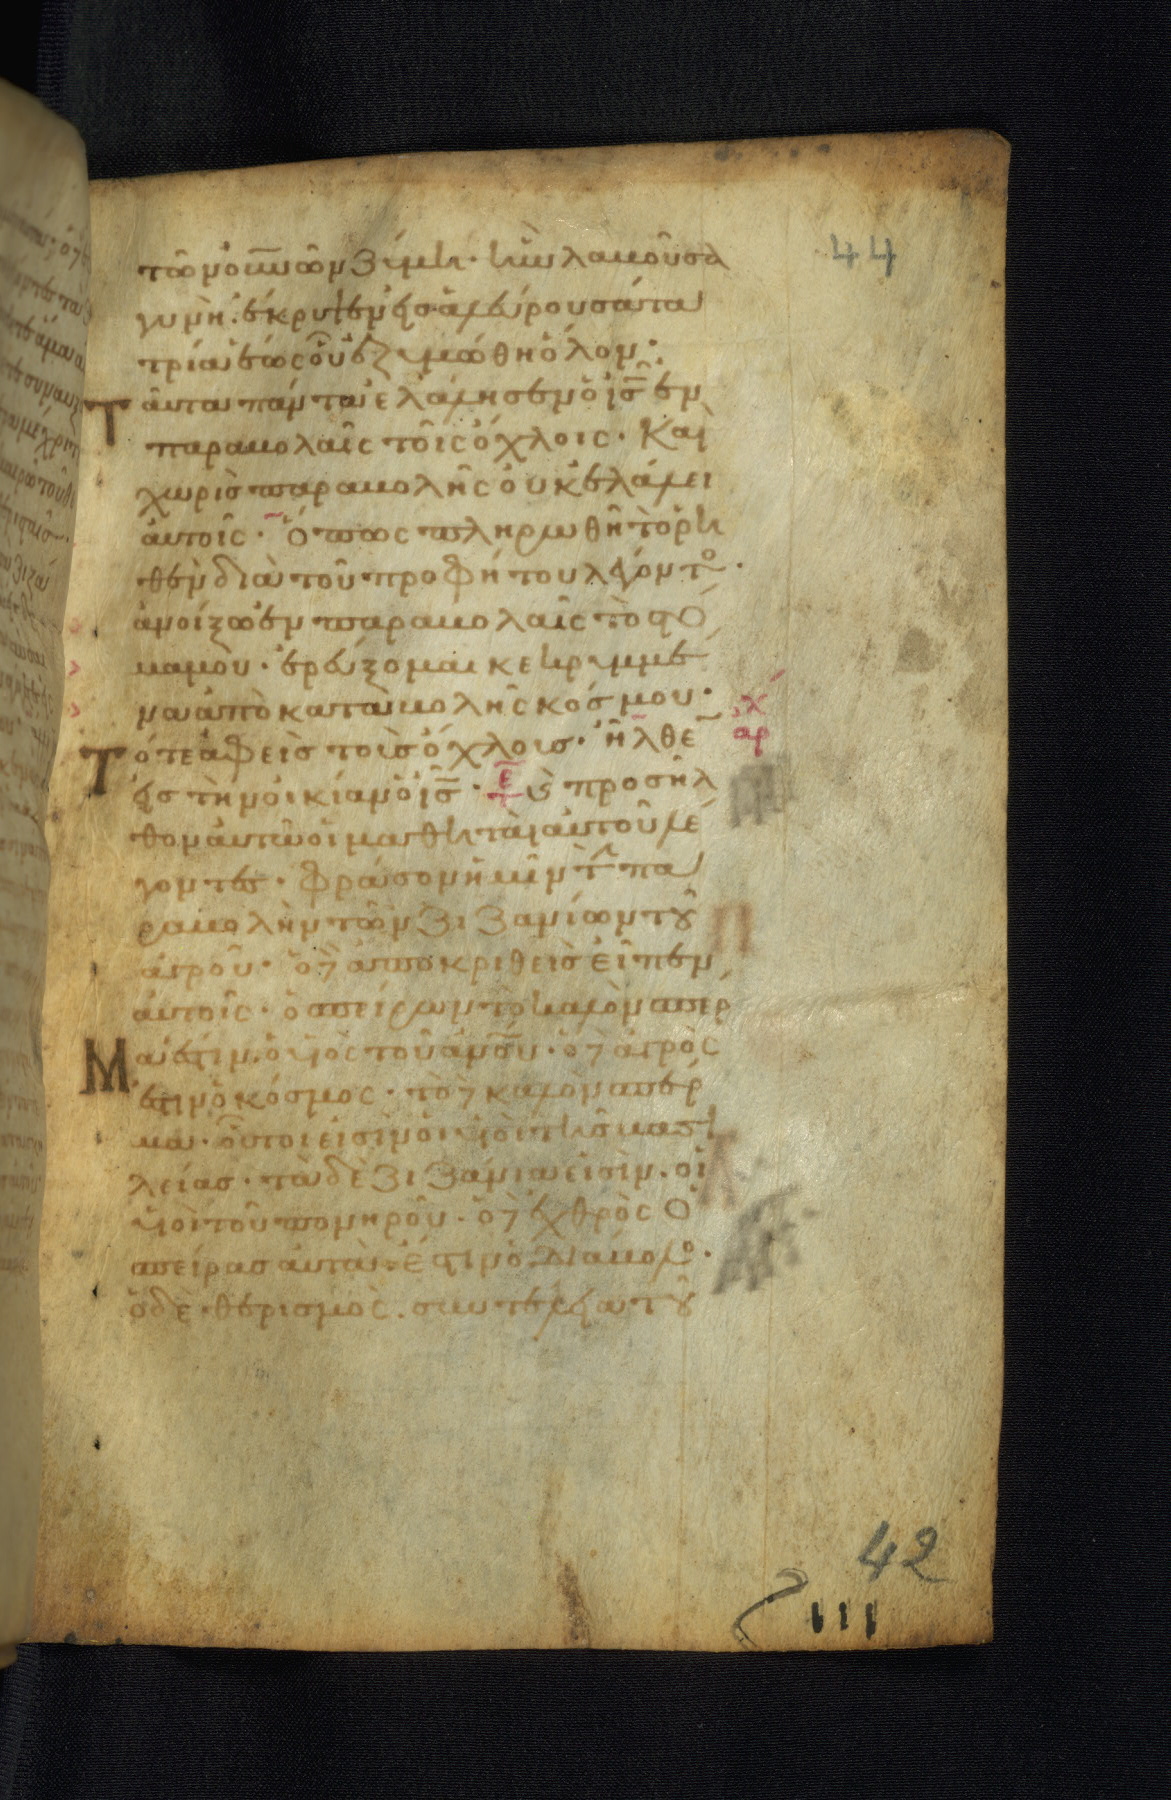 44
τῶν οὐ̅ν̅ω̅ν ζύμη· ἣν λαβοῦσα
γυνὴ ἐκρυψεν εἰς ἀλεύρου σάτα
τρία ἑως οὗ ἐζυμώθη ὅλον·
Ταῦτα πάντα ἐλάλησεν ὁ ι̅ς̅ ἐν
παραβολαῖς τοῖς ὄχλοις· Και
χωρὶσ παραβολῆς οὐκ ἐλάλει
ἀυτοῖς· Ὅπως πληρωθῆ τὸ ρη
θὲν διὰ τοῦ προφήτου λέγοντο·
ἀνοίξω ἐν παραβολαῖς τὸ στό
μα μου· ἐρεύξομαι κεκρυμμέ
να ἀπὸ καταβολῆς κόσμου·
Τότε ἀφεὶσ τοὺσ ὄχλουσ· ἦλθε
χ
αρ
ἐις τὴν οἰκίαν ὁ ι̅ς̅· ϗ προσῆλ
θον ἀυτῶ οἱ μαθηταὶ ἀυτοῦ λέ
γοντες· φράσον ἡμῖν τ̀ πα
ραβολὴν τῶν ζιζανίων τοῦ
ἀγροῦ· ὁ δ ἀποκριθεὶσ εἶπεν
ἀυτοῖς· ὁ σπείρων τὸ καλὸν σπέρ
Μα ἐστὶν ὁ υἱὸς τοῦ α̅ν̅ο̅υ̅· ὁ δ ἀγρὸς
ἐστιν ὁ κόσμος· τὸ δ καλὸν σπέρ
μα· οὗτοι εἰσὶν οἱ υἱοὶ τῆσ βασι
λείασ· τὰ δὲ ζιζάνια εἰσὶν· οἱ
υἱοὶ τοῦ πονηροῦ· ὁ δ ἐχθρὸς ὁ
σπείρασ ἀυτὰ· ἐστιν ὁ διάβολο·
ὁ δὲ θερισμὸς· συντέλεια τοῦ
42